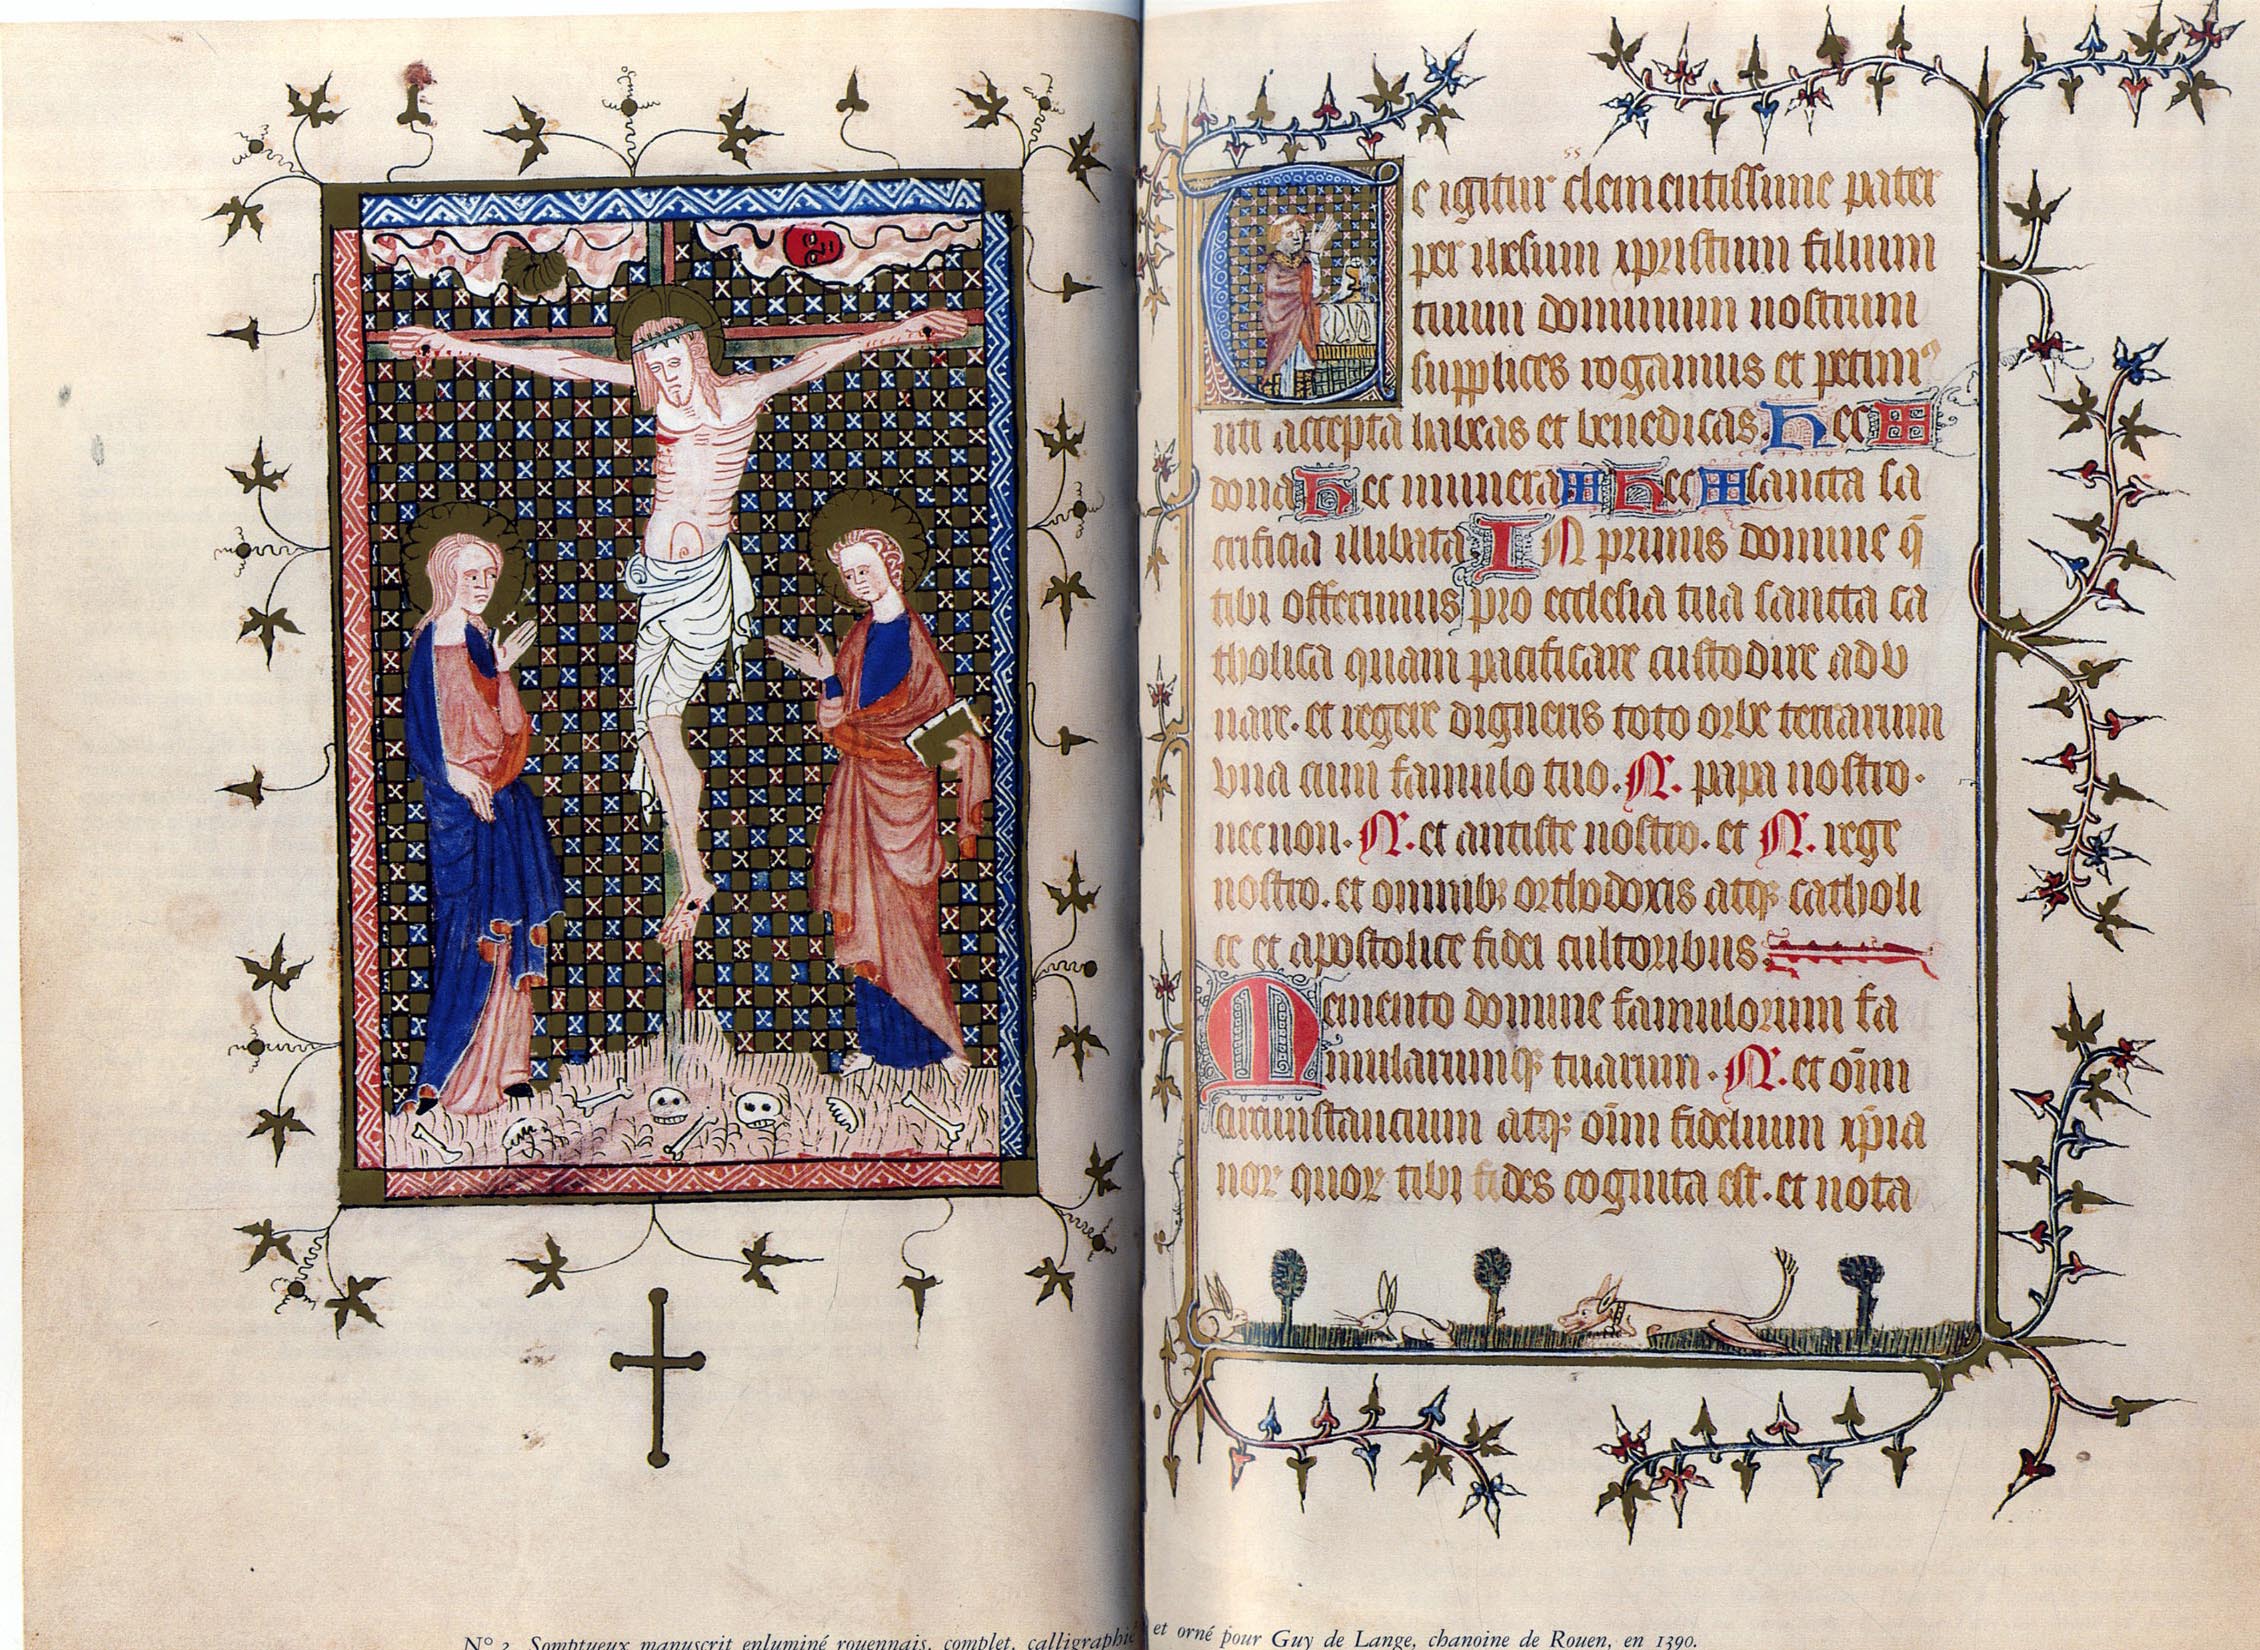 Te igitur clementissime pater
per ihesum xpristum filium
tuum dominum nostrum
supplices rogamus et petim⁹
uti accepta habeas et benedicas. Hec ✠
dona Hec munera ✠ Hec ✠ sancta sa
crificia illibata IN primis domine q̄
tibi offerimus pro ecclesia tua sancta ca
tholica quam pacificare custodire adu
nare. et regere digneris toto orbe terrarum
vna cum famulo tuo. N. papa nostro.
necnon. N. et antiste nostro. et N. rege
nostro. et omnibꝫ orthodoxis atqꝫ catholi
ce et apostolice fidei cultoribus.
Memento domine famulorum fa
mularumqꝫ tuarum. N. et oīm
circumstancium atqꝫ oīm fidelium xp̄ia
noꝝ quoꝝ tibi fides cognita est. et nota
N° 2 Somptueux manuscrit enluminé rouennais, complet, calligraphié et orné pour Guy de Lange, chanoine de Rouen, en 1390.